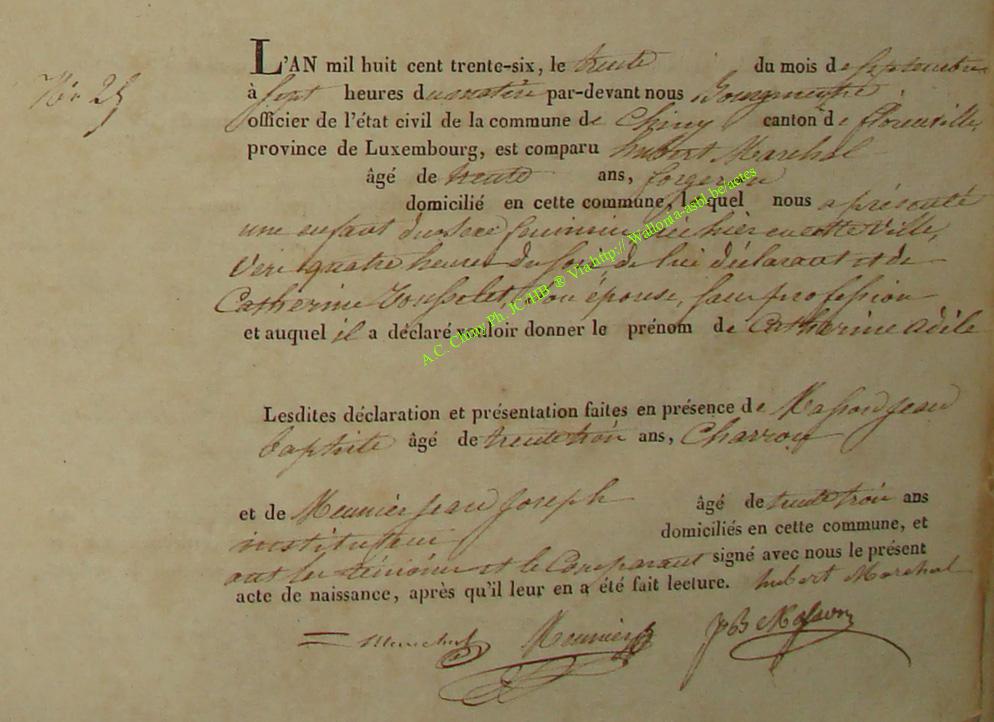 No 25
L'AN mil huit cent trente-six, le trente du mois de septembre
à sept heures du matin par-devant nous Bourgmestre
officier de l'état civil de la commune de Chiny canton de florenville,
province de Luxembourg, est comparu hubert Marchal
âgé de trente ans, forgeron
domicilié en cette commune, lequel nous a présenté
une enfant du sexe feminin née hier en cette Ville,
Vers quatre heures du soir de lui déclarant et de
Catherine son épouse, sans profession
et auquel il a déclaré vouloir donner le prénom de Catherine adile
Lesdites déclaration et présentation faites en présence de Masson jean
baptiste âgé de trente trois ans, Charron
et de Meunier jean joseph âgé de trente trois ans
instituteur domiciliés en cette commune, et
ont les témoins et le Comparant signé avec nous le présent
acte de naissance, après qu'il leur en a été fait lecture. hubert Marchal
Meunier JB Masson
A.C. Chiny Ph. JC-HB ® Via http:// Wallonia-asbl.be/actes